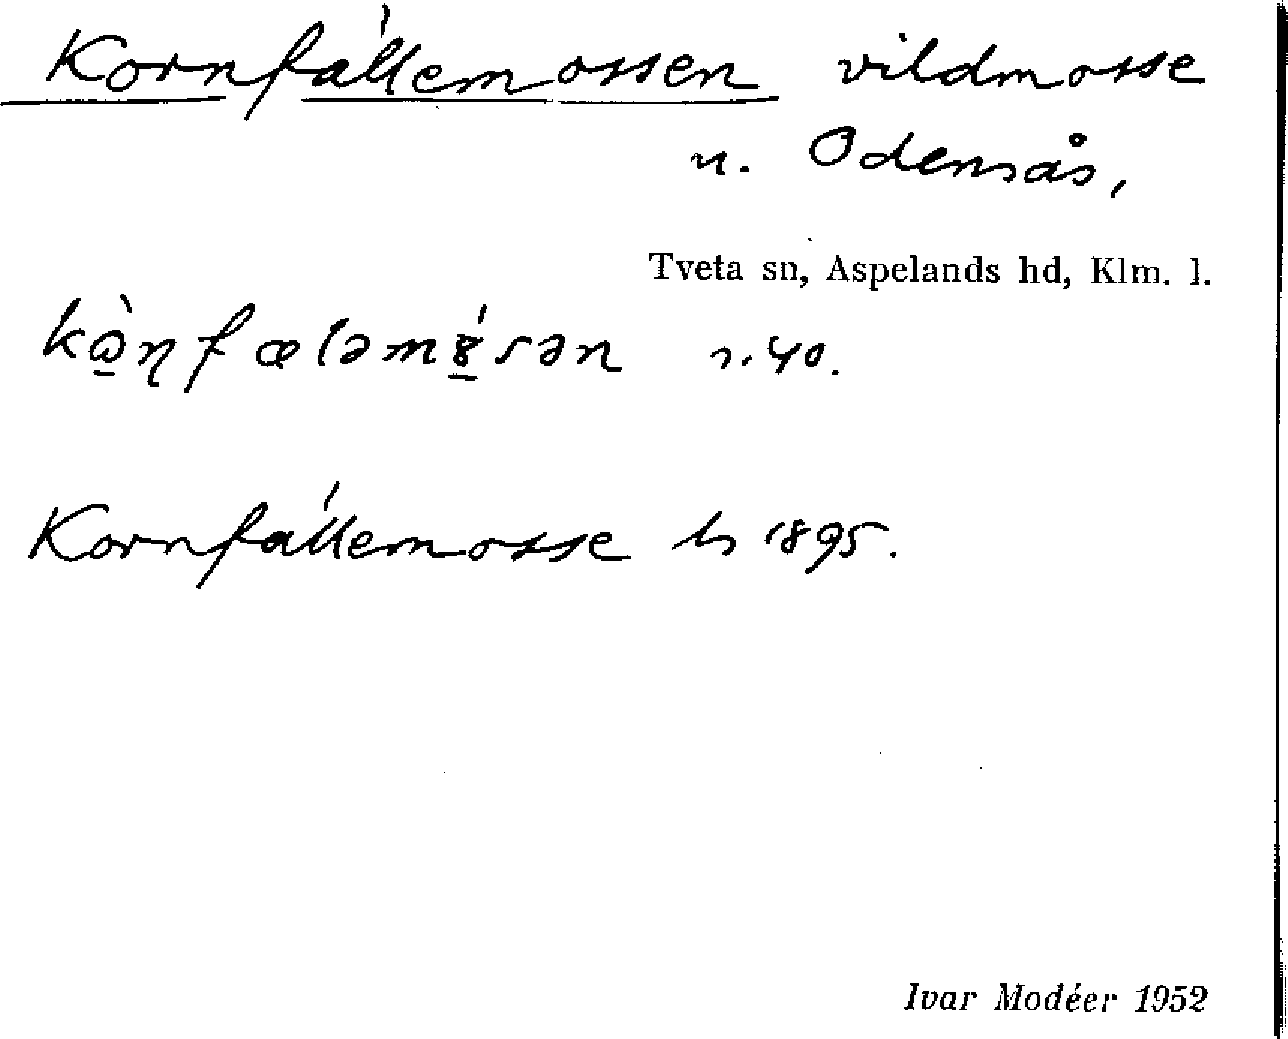 Kornfällemossen vildmosse
n. Odensås,
Tveta sn, Aspelands hd, Klm. l.
r. 40.
Kornfällemosse hs 1895.
Ivar Modéer 1952